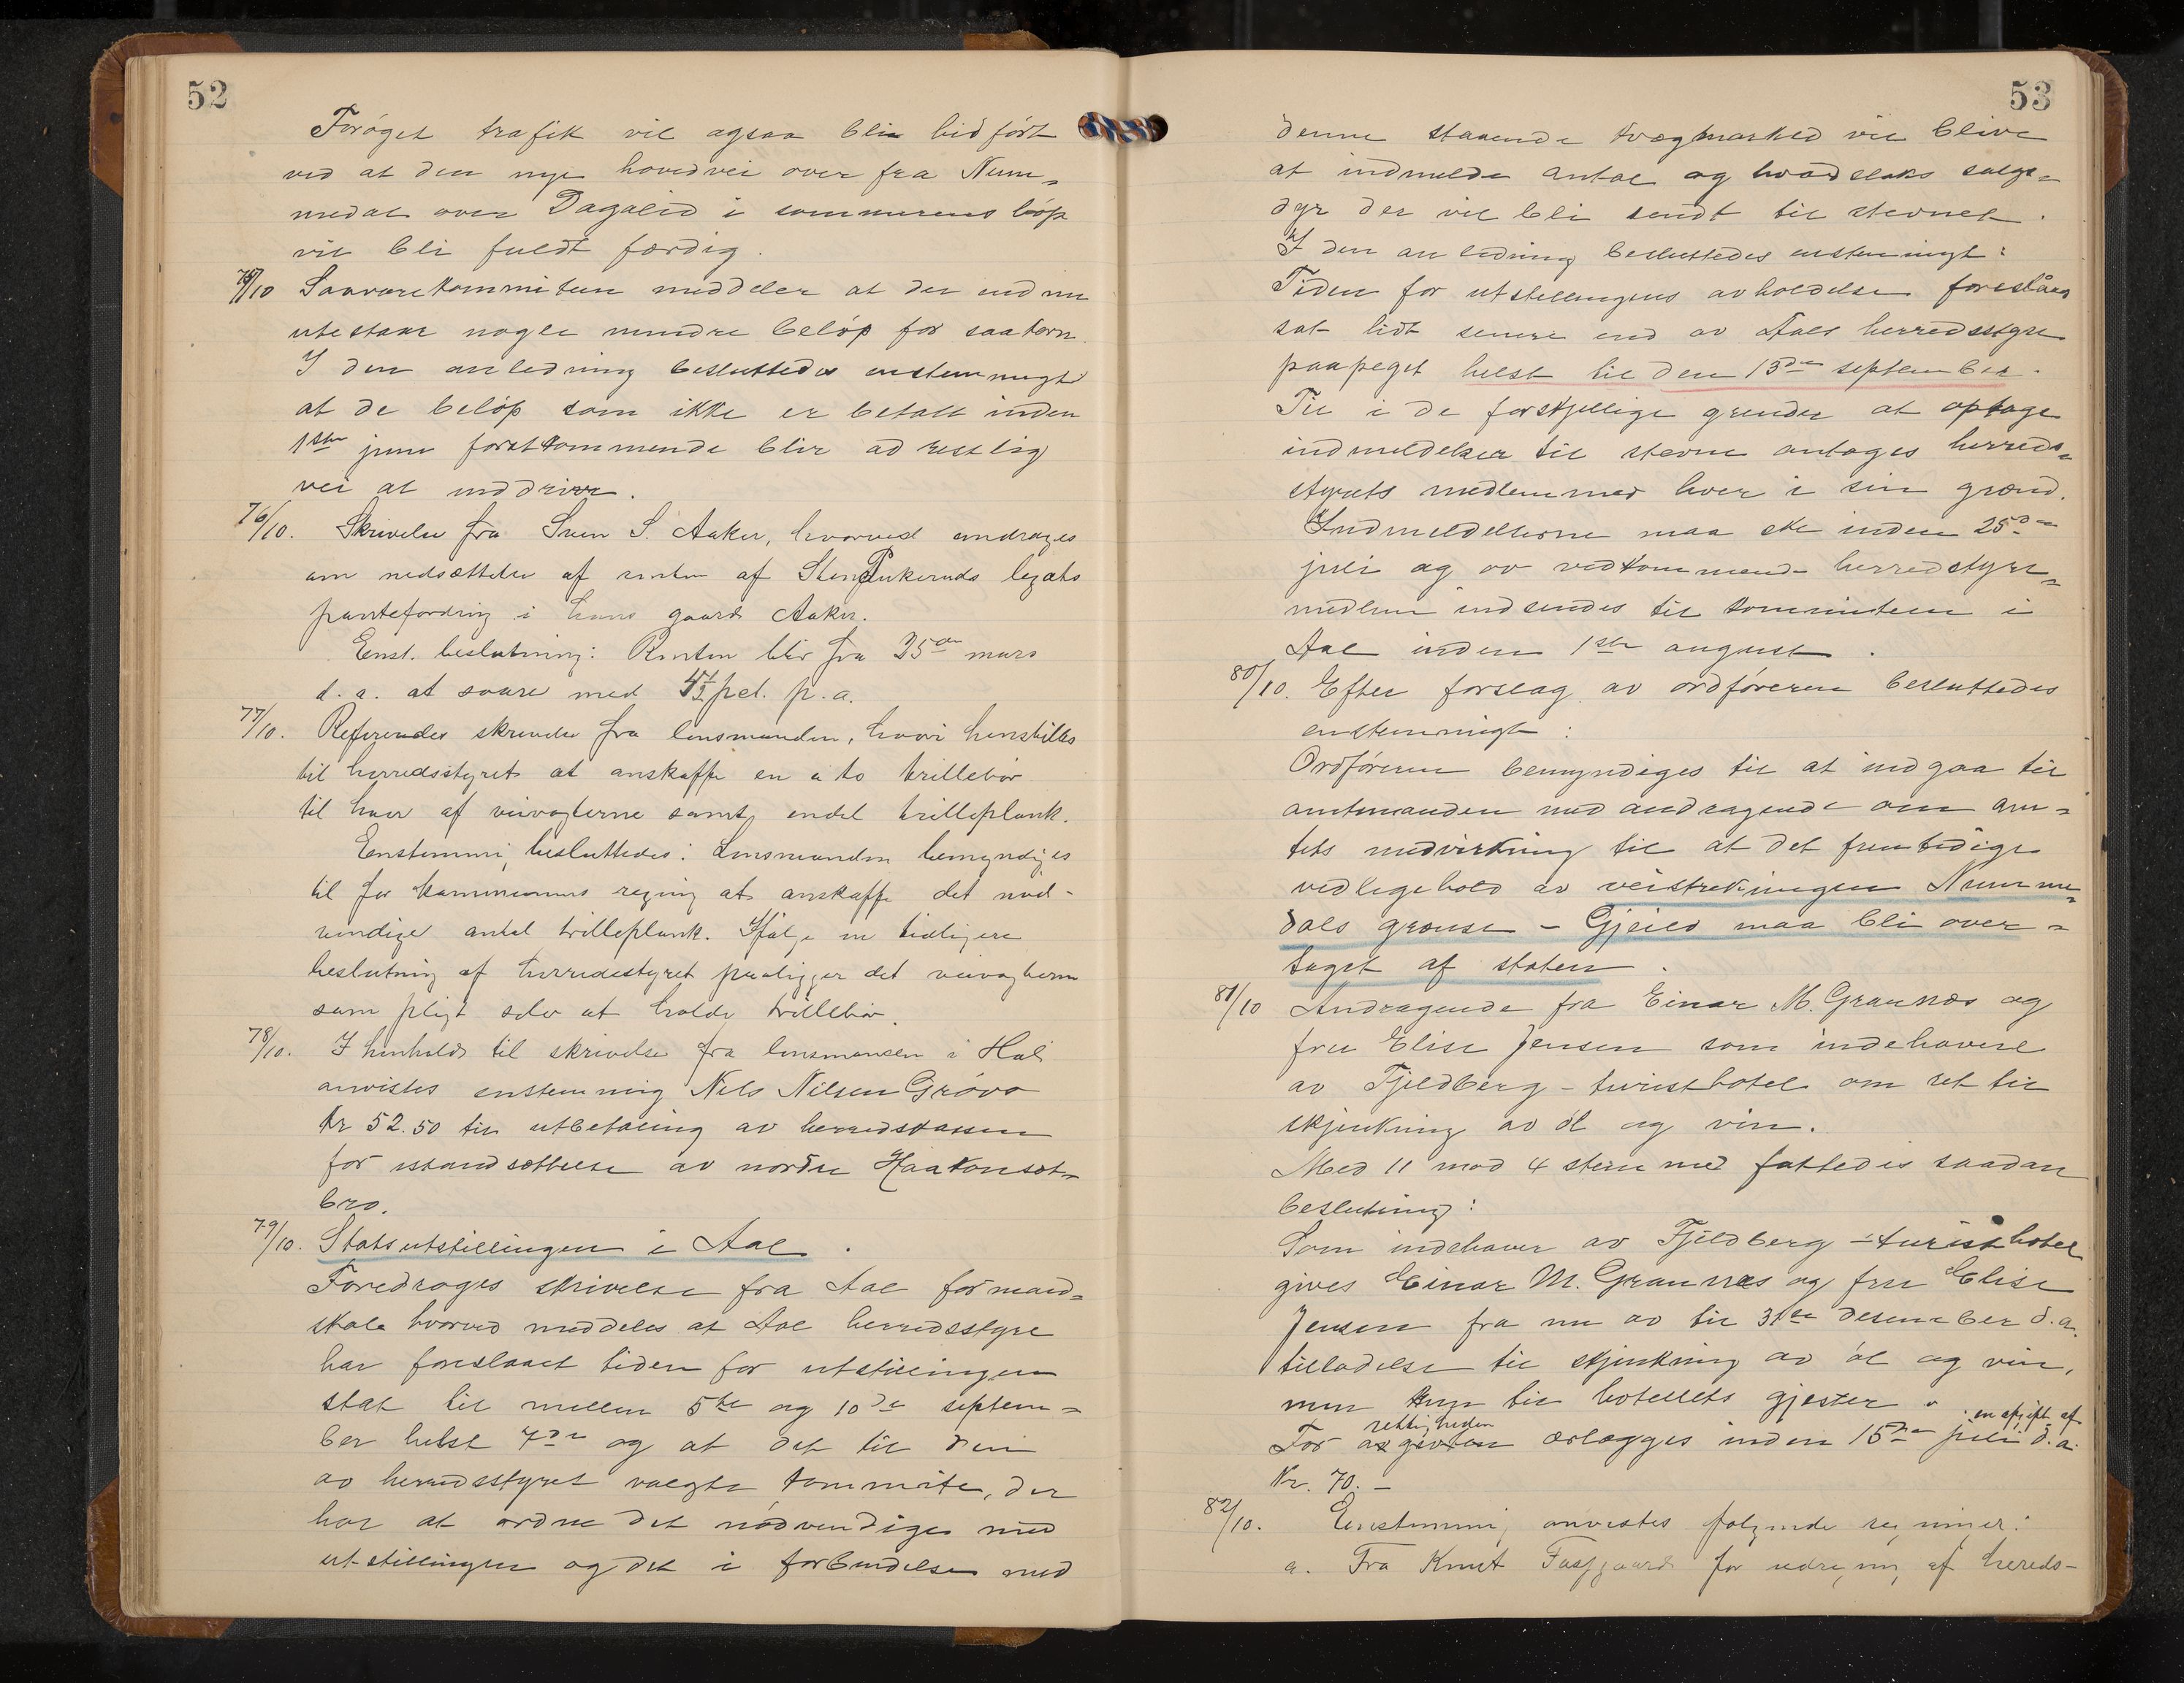 52
Forøget trafik vil ogsaa bli hidført
ved at den nye hovedvei over fra Num-
medal over Dagalid i sommerens løp
vil bli fuldt færdig.
75/10 Saavarekommiteen meddeler at der endnu
utestaar nogle mindre beløp for saakorn.
I den anledning besluttedes enstemmigt
at de beløp som ikke er betalt inden
1ste juni førstkommende blir ad restlig
vei at inddrive.
76/10. Skrivelse fra Sven S. Aaker, hvorved andrages
om nedsættelse af renten af Sten Pukeruds legats
pantefordring i hans gaard Aaker.
Enst. beslutning: Renten blir fra 25de mars
d. a. at svare med 4½ pct. p. a.
77/10. Refereredes skrivelse fra lensmanden, hvori henstilles
til herredsstyret at anskaffe en a to trillebør
til hver af veivogterne samt endel trilleplank.
Enstemmig besluttedes: Lensmanden bemyndiges
til for kommunens regning at anskaffe det nød-
vendige antal trilleplank. Ifølge en tidligere
beslutning af herredsstyret paaligger det veivogterne
som pligt selv at holde trillebør.
78/10. I henhold til skrivelse fra lensmanden i Hol
anvistes enstemmig Nils Nilsen Grøvo
kr 52.50 til utbetaling av herredskassen
for istandsættelse av nordre Haakonset-
bro.
79/10. Statsutstillingen i Aal.
Foredroges skrivelse fra Aal formand-
skab hvorved meddeles at Aal herredsstyre
har foreslaaet tiden for utstillingen
sat til mellem 5te og 10de septem-
ber helst 7de og at det til den
av herredsstyret valgte kommite, der
har at ordne det nødvendige med
utstillingen og det i forbindelse med
53
denne staaende kvægmarked vil blive
at indmelde antal og hvadslags salgs-
dyr der vil bli sendt til stevnet.
I den anledning besluttedes enstemmigt:
Tiden for utstillingens avholdelse foreslåes
sat lidt senere end av Aals herredsstyre
paapeget helst til den 15de september.
Til i de forskjellige grender at optage
indmeldelser til stevne antages herreds-
styrets medlemmer hver i sin grend.
Indmeldelserne maa ske inden 25de
juli og av vedkommende herredsstyre-
medlem indsendes til kommiteen i
Aal inden 1ste august.
80/10. Efter forslag av ordføreren besluttedes
enstemmigt:
Ordføreren bemyndiges til at indgaa til
amtmanden med andragende om am-
tets medvirkning til at det fremtidige
vedligehold av veistrekningen Numme-
dals grense - Gjeilo maa bli over-
taget af staten.
81/10 Andragende fra Einar M. Graunæs og
fru Elise Jensen som indehavere
av Fjeldberg-turisthotel om ret til
skjenkning av øl og vin.
Med 11 mod 4 stemmer fattedes saadan
beslutning:
Som indehaver av Fjeldberg-turisthotel
gives Einar M. Graunæs og fru Elise
Jensen fra nu av til 31te desember d.a.
tilladelse til skjenkning av øl og vin,
men kun til hotellets gjester.
rettigheden en avgift af
For erlægges inden 15de juli d.a.
Kr. 70.-
82/10. Enstemmig anvistes følgende regninger:
a. Fra Knut Fasgaard for af hereds-